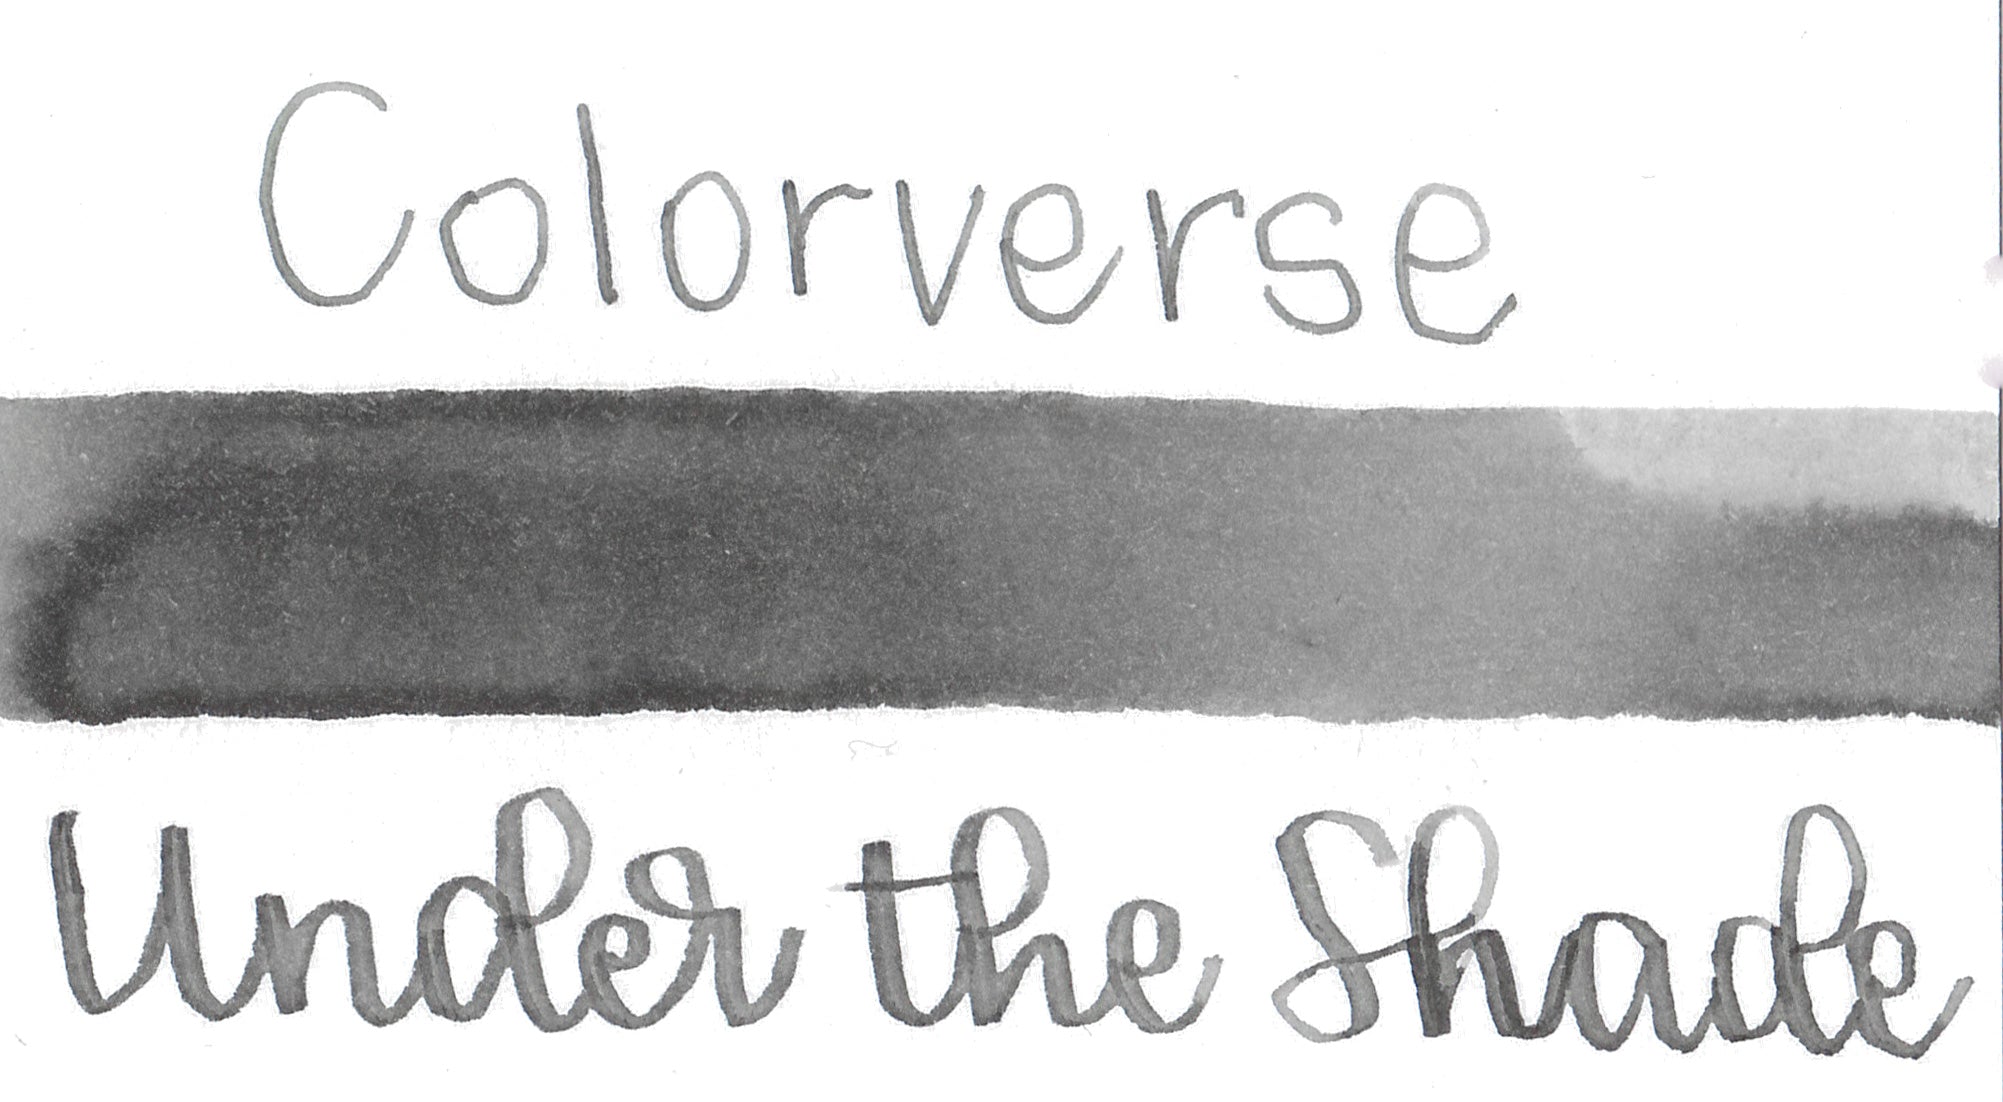 Colorverse
Under the Shade